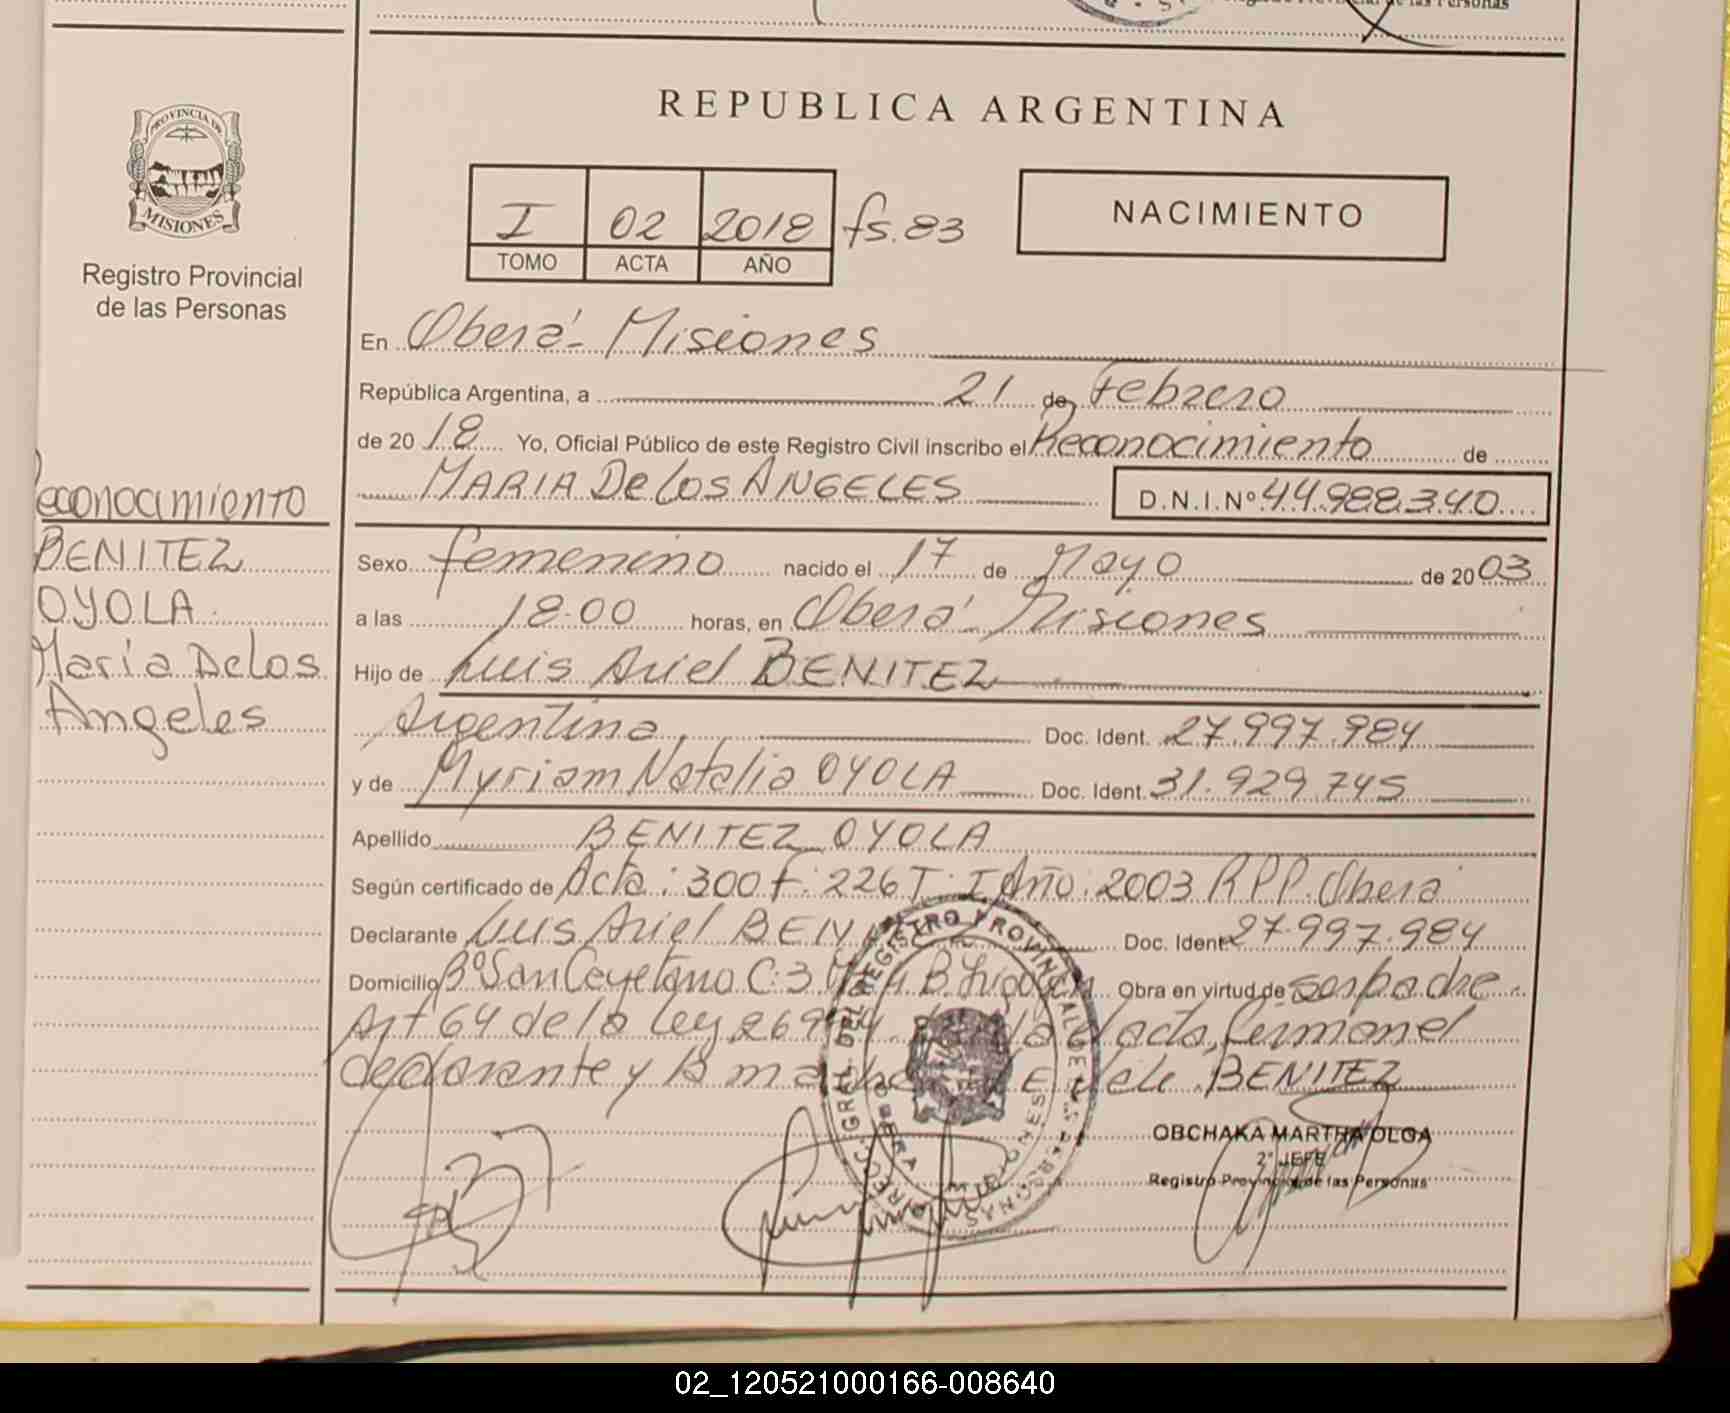 de las Personas
REPUBLICA ARGENTINA
PROVINCIA DE
MISIONES
Registro Provincial
de las Personas
I 02 2018 fs. 83
TOMO ACTA AÑO
NACIMIENTO
En Oberá - Misiones
República Argentina, a 21 de Febrero
de 20 18 Yo, Oficial Público de este Registro Civil inscribo el Reconocimiento de
MARIA De Los ANGELES D.N.I.Nº 44.988.340
Reconocimiento
BENITEZ
OYOLA
Maria De los
Angeles
Sexo femenino nacido el 17 de Mayo de 20 03
a las 18.00 horas, en Oberá - Misiones
Hijo de Luis Ariel BENITEZ
Argentina Doc. Ident. 27.997.984
y de Myriam Natalia OYOLA Doc. Ident. 31.929.745
Apellido BENITEZ OYOLA
Según certificado de Acta: 300 F: 226 T: I Año: 2003 RPP. Oberá
Declarante Luis Ariel BEN Doc. Ident. 27.997.984
Domicilio Bº San Cayetano C: 3 B. Obra en virtud de ser padre
Art 64 de la Ley acta, firman el
declarante y la BENITEZ
DIRECC. GRAL. DEL REGISTRO PROVINCIAL DE LAS PERSONAS
OBERA MISIONES
OBCHAKA MARTHA OLGA
2º JEFE
Registro Provincial de las Personas
02_120521000166-008640